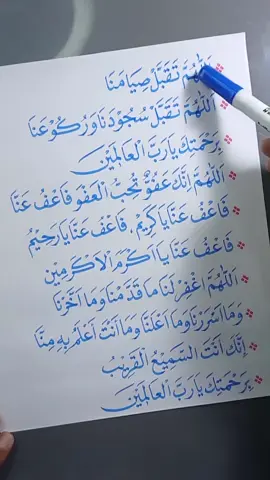 اَللّٰهُمَّ تَقَبَّلْ صِيَامَنَا
اَللّٰهُمَّ تَقَبَّلْ سُجُوْدَنَا وَرُكُوْعَنَا
بِرَحْمَتِكَ يَارَبَّ الْعَالَمِيْنَ
اَللّٰهُمَّ اِنَّكَ عَفُوٌّ تُحِبُّ الْعَفْوَ فَاعْفُ عَنَّا
فَاعْفُ عَنَّا يَا كَرِيْمُ، فَاعْفُ عَنَّا يَا رَحِيْمُ
فَاعْفُ عَنَّا يَا اَكْرَمَ الْاَكْرَمِيْنَ
اَللّٰهُمَّ اغْفِرْ لَنَا مَا قَدَّمْنَا وَمَا اَخَّرْنَا
وَمَا اَسْرَرْنَا وَمَا اَعْلَنَّا وَمَا اَنْتَ اَعْلَمُ بِهِ مِنَّا
اِنَّكَ اَنْتَ السَّمِيْعُ الْقَرِيْبُ
بِرَحْمَتِكَ يَارَبَّ الْعَالَمِيْنَ